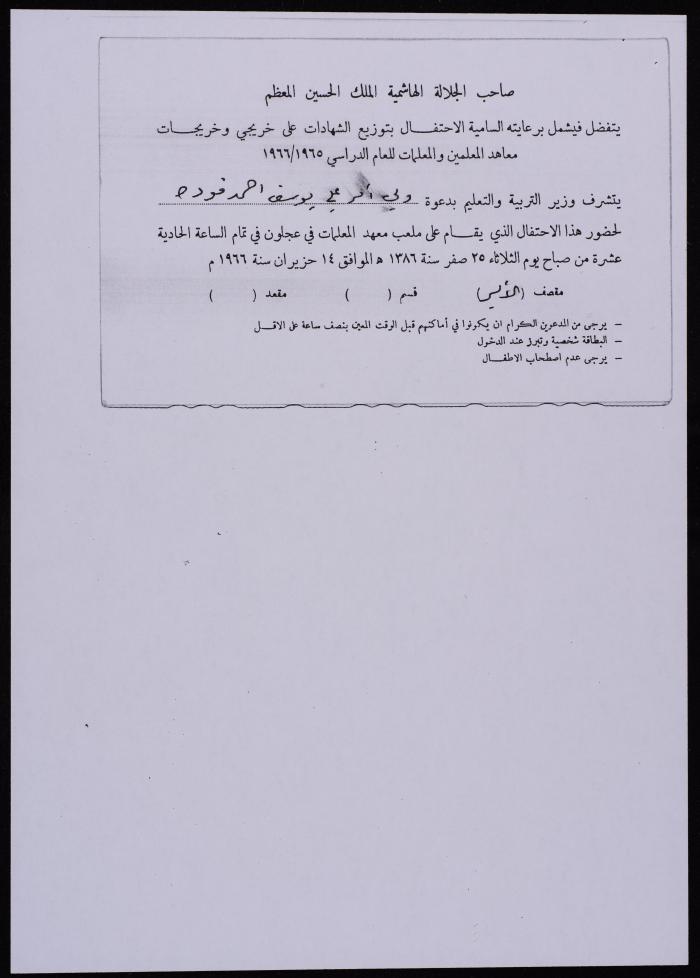 صاحب الجلالة الهاشمية الملك الحسين المعظم
يتفضل فيشمل برعايته السامية الاحتفال بتوزيع الشهادات على خريجي وخريجات
معاهد المعلمين والمعلمات للعام الدراسي ١٩٦٦/١٩٦٥
يتشرف وزير التربية والتعليم بدعوة ولي أمر علي يوسف احمد فودة
لحضور هذا الاحتفال الذي يقام على ملعب معهد المعلمات في عجلون في تمام الساعة الحادية
عشرة من صباح يوم الثلاثاء ٢٥ صفر سنة ١٣٨٦ ه الموافق ١٤ حزيران سنة ١٩٦٦ م
مقصف (الأيسر) قسم ( ) مقعد ( )
— يرجى من المدعوين الكرام ان يكونوا في أماكنهم قبل الوقت المعين بنصف ساعة على الاقل
— البطاقة شخصية وتبرز عند الدخول
— يرجى عدم اصطحاب الاطفال